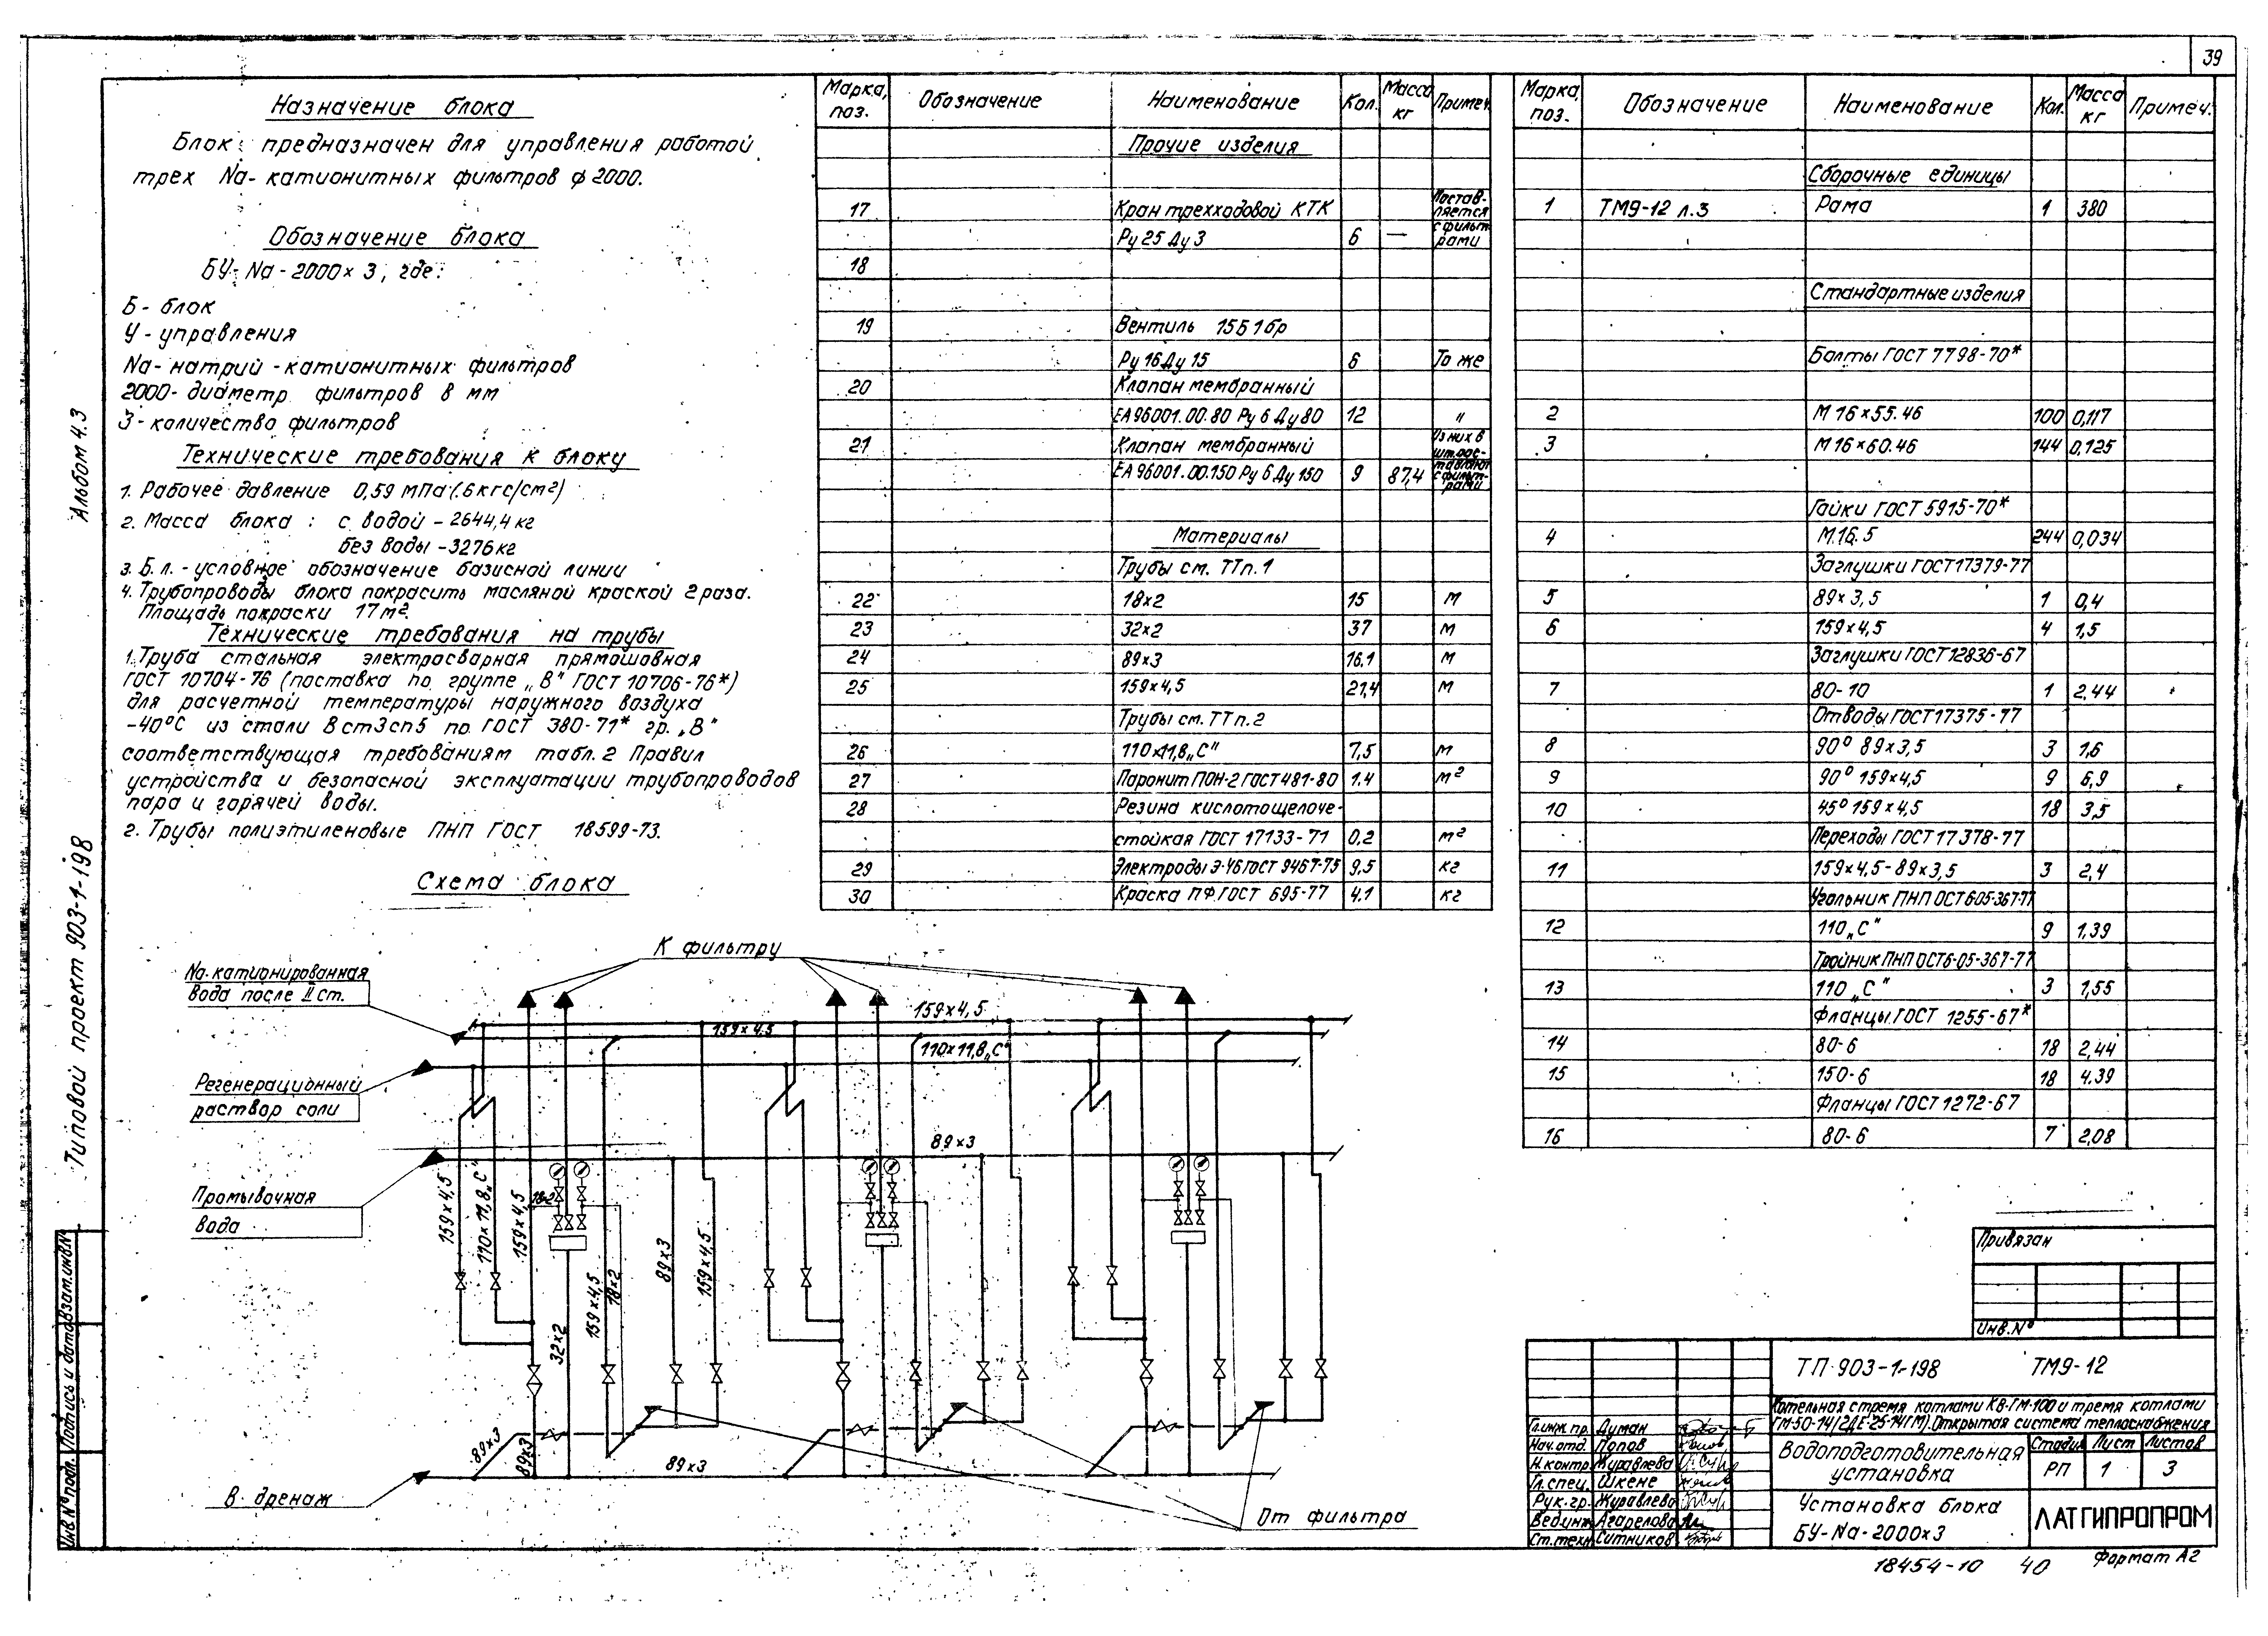 39
Назначение блока
Блок предназначен для управления работой
трех Na-катионитных фильтров ф 2000.
Обозначение блока
БУ-Na-2000×3, где:
Б - блок
У - управления
Na - натрий - катионитных фильтров
2000 - диаметр фильтров в мм
3 - количество фильтров
Технические требования к блоку
1. Рабочее давление 0,59 мПа (6кгс/см²)
2. Масса блока : с водой - 2644,4 кг
без воды - 3276 кг
3. Б.л. - условное обозначение базисной линии
4. Трубопроводы блока покрасить масляной краской 2 раза.
Площадь покраски 17 м².
Технические требования на трубы
1. Труба стальная электросварная прямошовная
ГОСТ 10704-76 (поставка по группе „В" ГОСТ 10706-76*)
для расчетной температуры наружного воздуха
-40°С из стали Вст3сп5 по ГОСТ 380-71* гр. „В"
соответствующая требованиям табл. 2 Правил
устройства и безопасной эксплуатации трубопроводов
пара и горячей воды.
2. Трубы полиэтиленовые ПНП ГОСТ 18599-73.
Марка, поз. Обозначение Наименование Кол. Масса кг Примеч.
Прочие изделия
17 Кран трехходовой КТК Постав-
ляется
Ру 25 Ду 3 6 — с фильт-
рами
18
19 Вентиль 15Б1бр
Ру 16 Ду 15 6 То же
20 Клапан мембранный
ЕА 96001.00.80 Ру 6 Ду 80 12 "
21 Клапан мембранный Из них 8
ЕА 96001.00.150 Ру 6 Ду 150 9 87,4 с фильт-
рами
Материалы
Трубы см. ТТп.1
22 18×2 15 м
23 32×2 37 м
24 89×3 16.1 м
25 159×4,5 21,4 м
Трубы см. ТТп.2
26 110×11,8„С" 7,5 м
27 Паронит ПОН-2 ГОСТ 481-80 1.4 м²
28 Резина кислотощелоче-
стойкая ГОСТ 17133-71 0,2 м²
29 Электроды Э-46 ГОСТ 9467-75 9,5 кг
30 Краска ПФ ГОСТ 695-77 4.1 кг
Марка, поз. Обозначение Наименование Кол. Масса кг Примеч.
Сборочные единицы
1 ТМ9-12 л.3 Рама 1 380
Стандартные изделия
Болты ГОСТ 7798-70*
2 М 16×55.46 100 0,117
3 М 16×60.46 144 0,125
Гайки ГОСТ 5915-70*
4 М.16.5 244 0,034
Заглушки ГОСТ 17379-77
5 89×3,5 1 0,4
6 159×4,5 4 1,5
Заглушки ГОСТ 12836-67
7 80-10 1 2,44
Отводы ГОСТ 17375-77
8 90° 89×3,5 3 1,6
9 90° 159×4,5 9 6,9
10 45° 159×4,5 18 3,5
Переходы ГОСТ 17378-77
11 159×4,5-89×3,5 3 2,4
Угольник ПНП ОСТ6-05-367-77
12 110„С" 9 1,39
Тройник ПНП ОСТ6-05-367-77
13 110 „С" 3 1,55
Фланцы ГОСТ 1255-67*
14 80-6 18 2,44
15 150-6 18 4.39
Фланцы ГОСТ 1272-67
16 80-6 7 2,08
Схема блока
К фильтру
Na-катионированная
вода после II ст.
159×4,5
159×4.5
110×11,8„С"
Регенерационный
раствор соли
89×3
Промывочная
вода
159×4,5
110×11,8„С"
159×4,5
18×2
32×2
159×4,5
18×2
89×3
159×4.5
89×3
89×3
89×3
В дренаж
От фильтра
Альбом 4.3
Типовой проект 903-1-198
Инв.№подл. Подпись и дата Взам.инв.№
Привязан
Инв.№
ТП 903-1-198 ТМ9-12
Котельная с тремя котлами КВ-ГМ-100 и тремя котлами
ГМ-50-14/(2ДЕ-25-14ГМ). Открытая система теплоснабжения
Гл.инж.пр. Думан
Нач.отд. Попов
Н.контр. Журавлева
Гл.спец. Шкене
Рук.гр. Журавлева
Вед.инж. Агарелова
Ст.техн. Ситников
Водоподготовительная
установка
Стадия Лист Листов
РП 1 3
Установка блока
БУ-Na-2000×3
ЛАТГИПРОПРОМ
18454-10 40 Формат А2